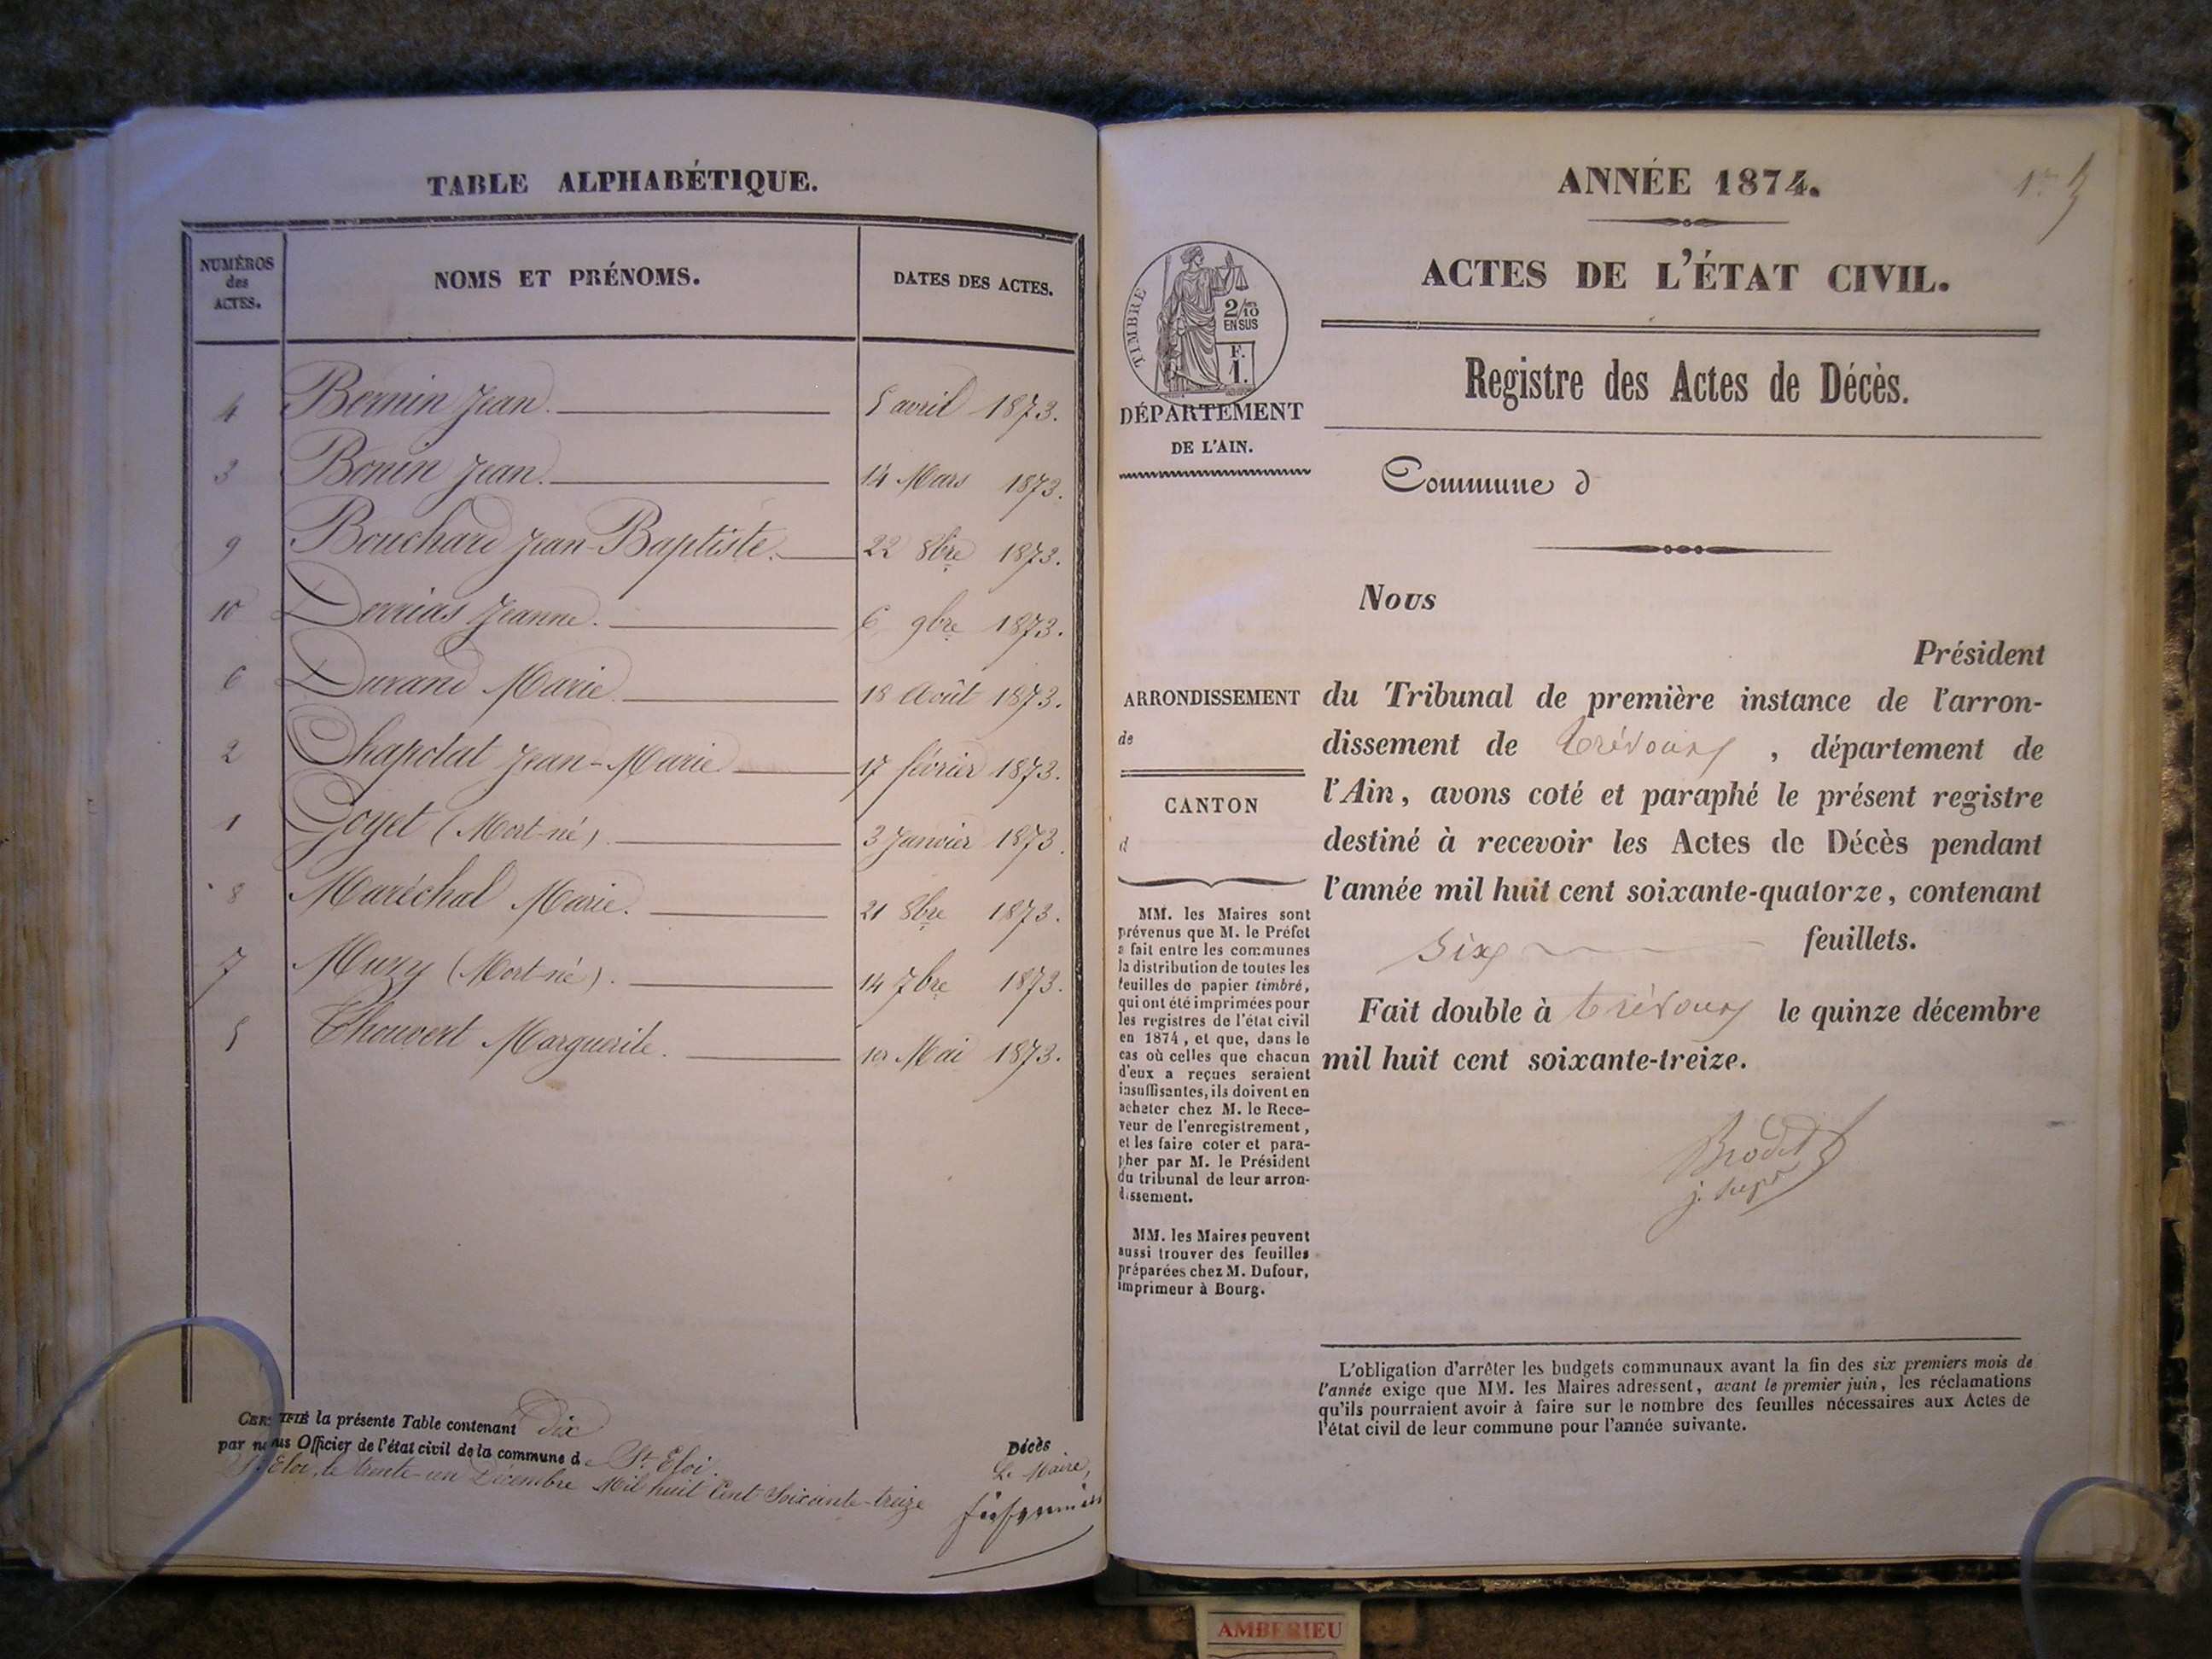 TABLE ALPHABÉTIQUE.
NUMÉROS des ACTES. NOMS ET PRÉNOMS. DATES DES ACTES.
4 Bernin Jean. 5 avril 1873.
3 Bonin Jean. 14 Mars 1873.
9 Bouchard Jean-Baptiste. 22 8bre 1873.
10 Jeanne. 6 9bre 1873.
6 Durand Marie. 18 Août 1873.
2 Chapolat Jean-Marie 17 février 1873.
1 Goyet (Mort-né). 3 Janvier 1873.
8 Maréchal Marie. 21 8bre 1873.
7 Muzy (Mort-né). 14 7bre 1873.
5 Thouvert Marguerite. 1er Mai 1873.
CERTIFIÉ la présente Table contenant Dix Décès
par nous Officier de l'état civil de la commune de St Eloi.
St Eloi, le trente-un Décembre Mil huit Cent Soixante-treize
Le Maire,
ANNÉE 1874.
1er
ACTES DE L'ÉTAT CIVIL.
TIMBRE
2/10
EN SUS
F.
1.
DÉPARTEMENT
DE L'AIN.
Registre des Actes de Décès.
Commune d
ARRONDISSEMENT
de
CANTON
d
MM. les Maires sont
prévenus que M. le Préfet
a fait entre les communes
la distribution de toutes les
feuilles de papier timbré,
qui ont été imprimées pour
les registres de l'état civil
en 1874, et que, dans le
cas où celles que chacun
d'eux a reçues seraient
insuffisantes, ils doivent en
acheter chez M. le Rece-
veur de l'enregistrement,
et les faire coter et para-
pher par M. le Président
du tribunal de leur arron-
dissement.
MM. les Maires peuvent
aussi trouver des feuilles
préparées chez M. Dufour,
imprimeur à Bourg.
Nous
Président
du Tribunal de première instance de l'arron-
dissement de trévoux, département de
l'Ain, avons coté et paraphé le présent registre
destiné à recevoir les Actes de Décès pendant
l'année mil huit cent soixante-quatorze, contenant
six feuillets.
Fait double à trévoux le quinze décembre
mil huit cent soixante-treize.
Brodet
j. sup
L'obligation d'arrêter les budgets communaux avant la fin des six premiers mois de
l'année exige que MM. les Maires adressent, avant le premier juin, les réclamations
qu'ils pourraient avoir à faire sur le nombre des feuilles nécessaires aux Actes de
l'état civil de leur commune pour l'année suivante.
AMBERIEU